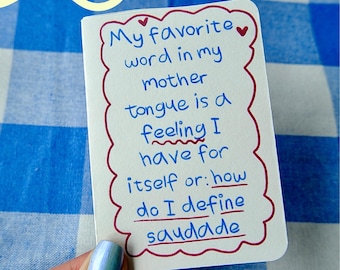 My favorite
word in my
mother
tongue is a
feeling I
have for
itself or: how
do I define
saudade